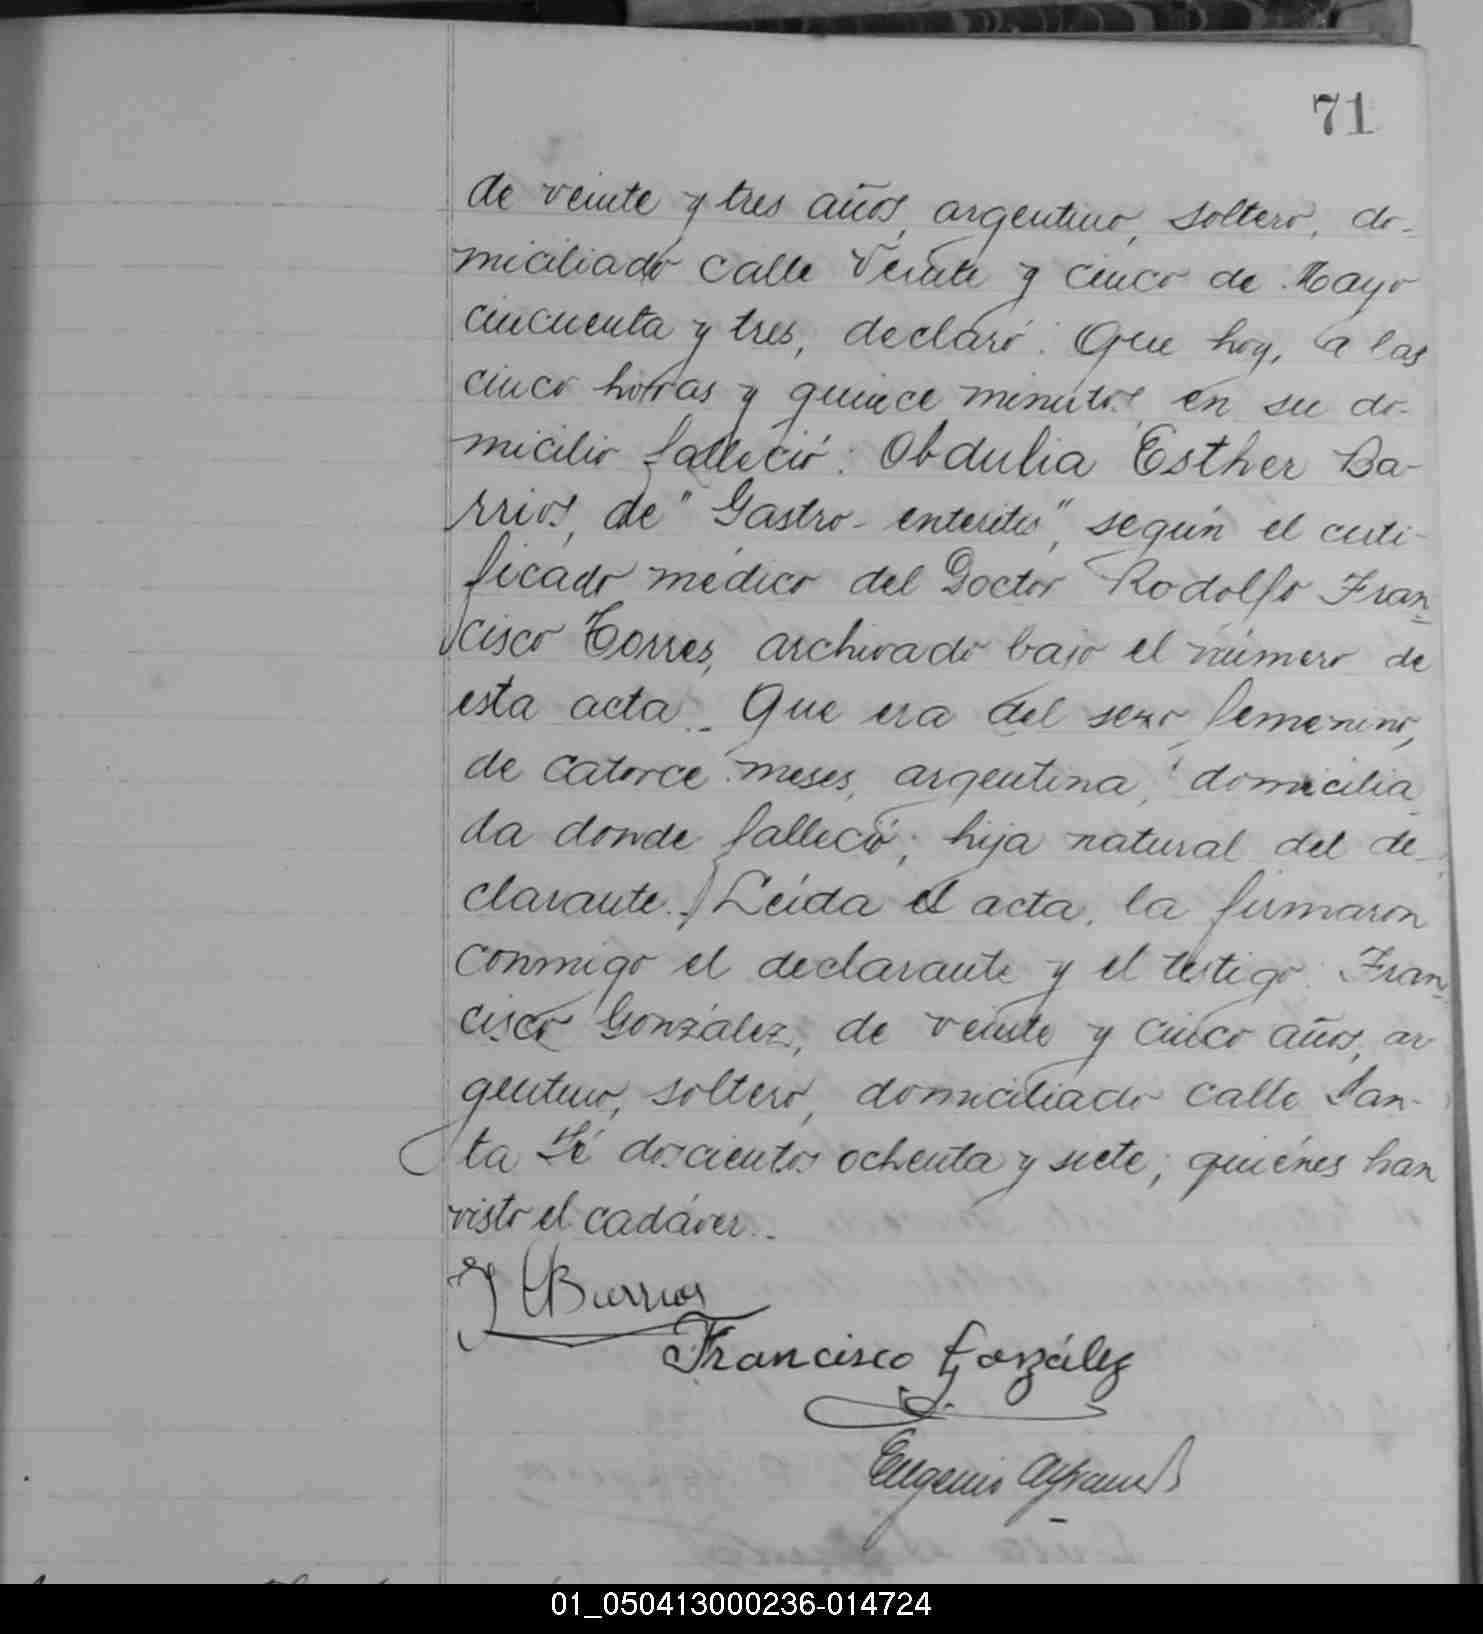 71
de veinte y tres años, argentino, soltero, do-
miciliado calle Veinte y cinco de Mayo
cincuenta y tres, declaró: Que hoy, a las
cinco horas y quince minutos, en su do-
micilio falleció: Obdulia Esther Ba-
rrios, de "Gastro-enteritis", según el certi-
ficado médico del Doctor Rodolfo Fran-
cisco Torres, archivado bajo el número de
esta acta.. Que era del sexo femenino,
de catorce meses, argentina, domicilia
da donde falleció; hija natural del de-
clarante. Leida el acta, la firmaron
conmigo el declarante y el testigo: Fran-
cisco González, de veinte y cinco años, ar
gentino, soltero, domiciliado calle San-
ta Fé doscientos ochenta y siete; quiénes han
visto el cadáver..
Barrios
Francisco González
Eugenio
01_050413000236-014724